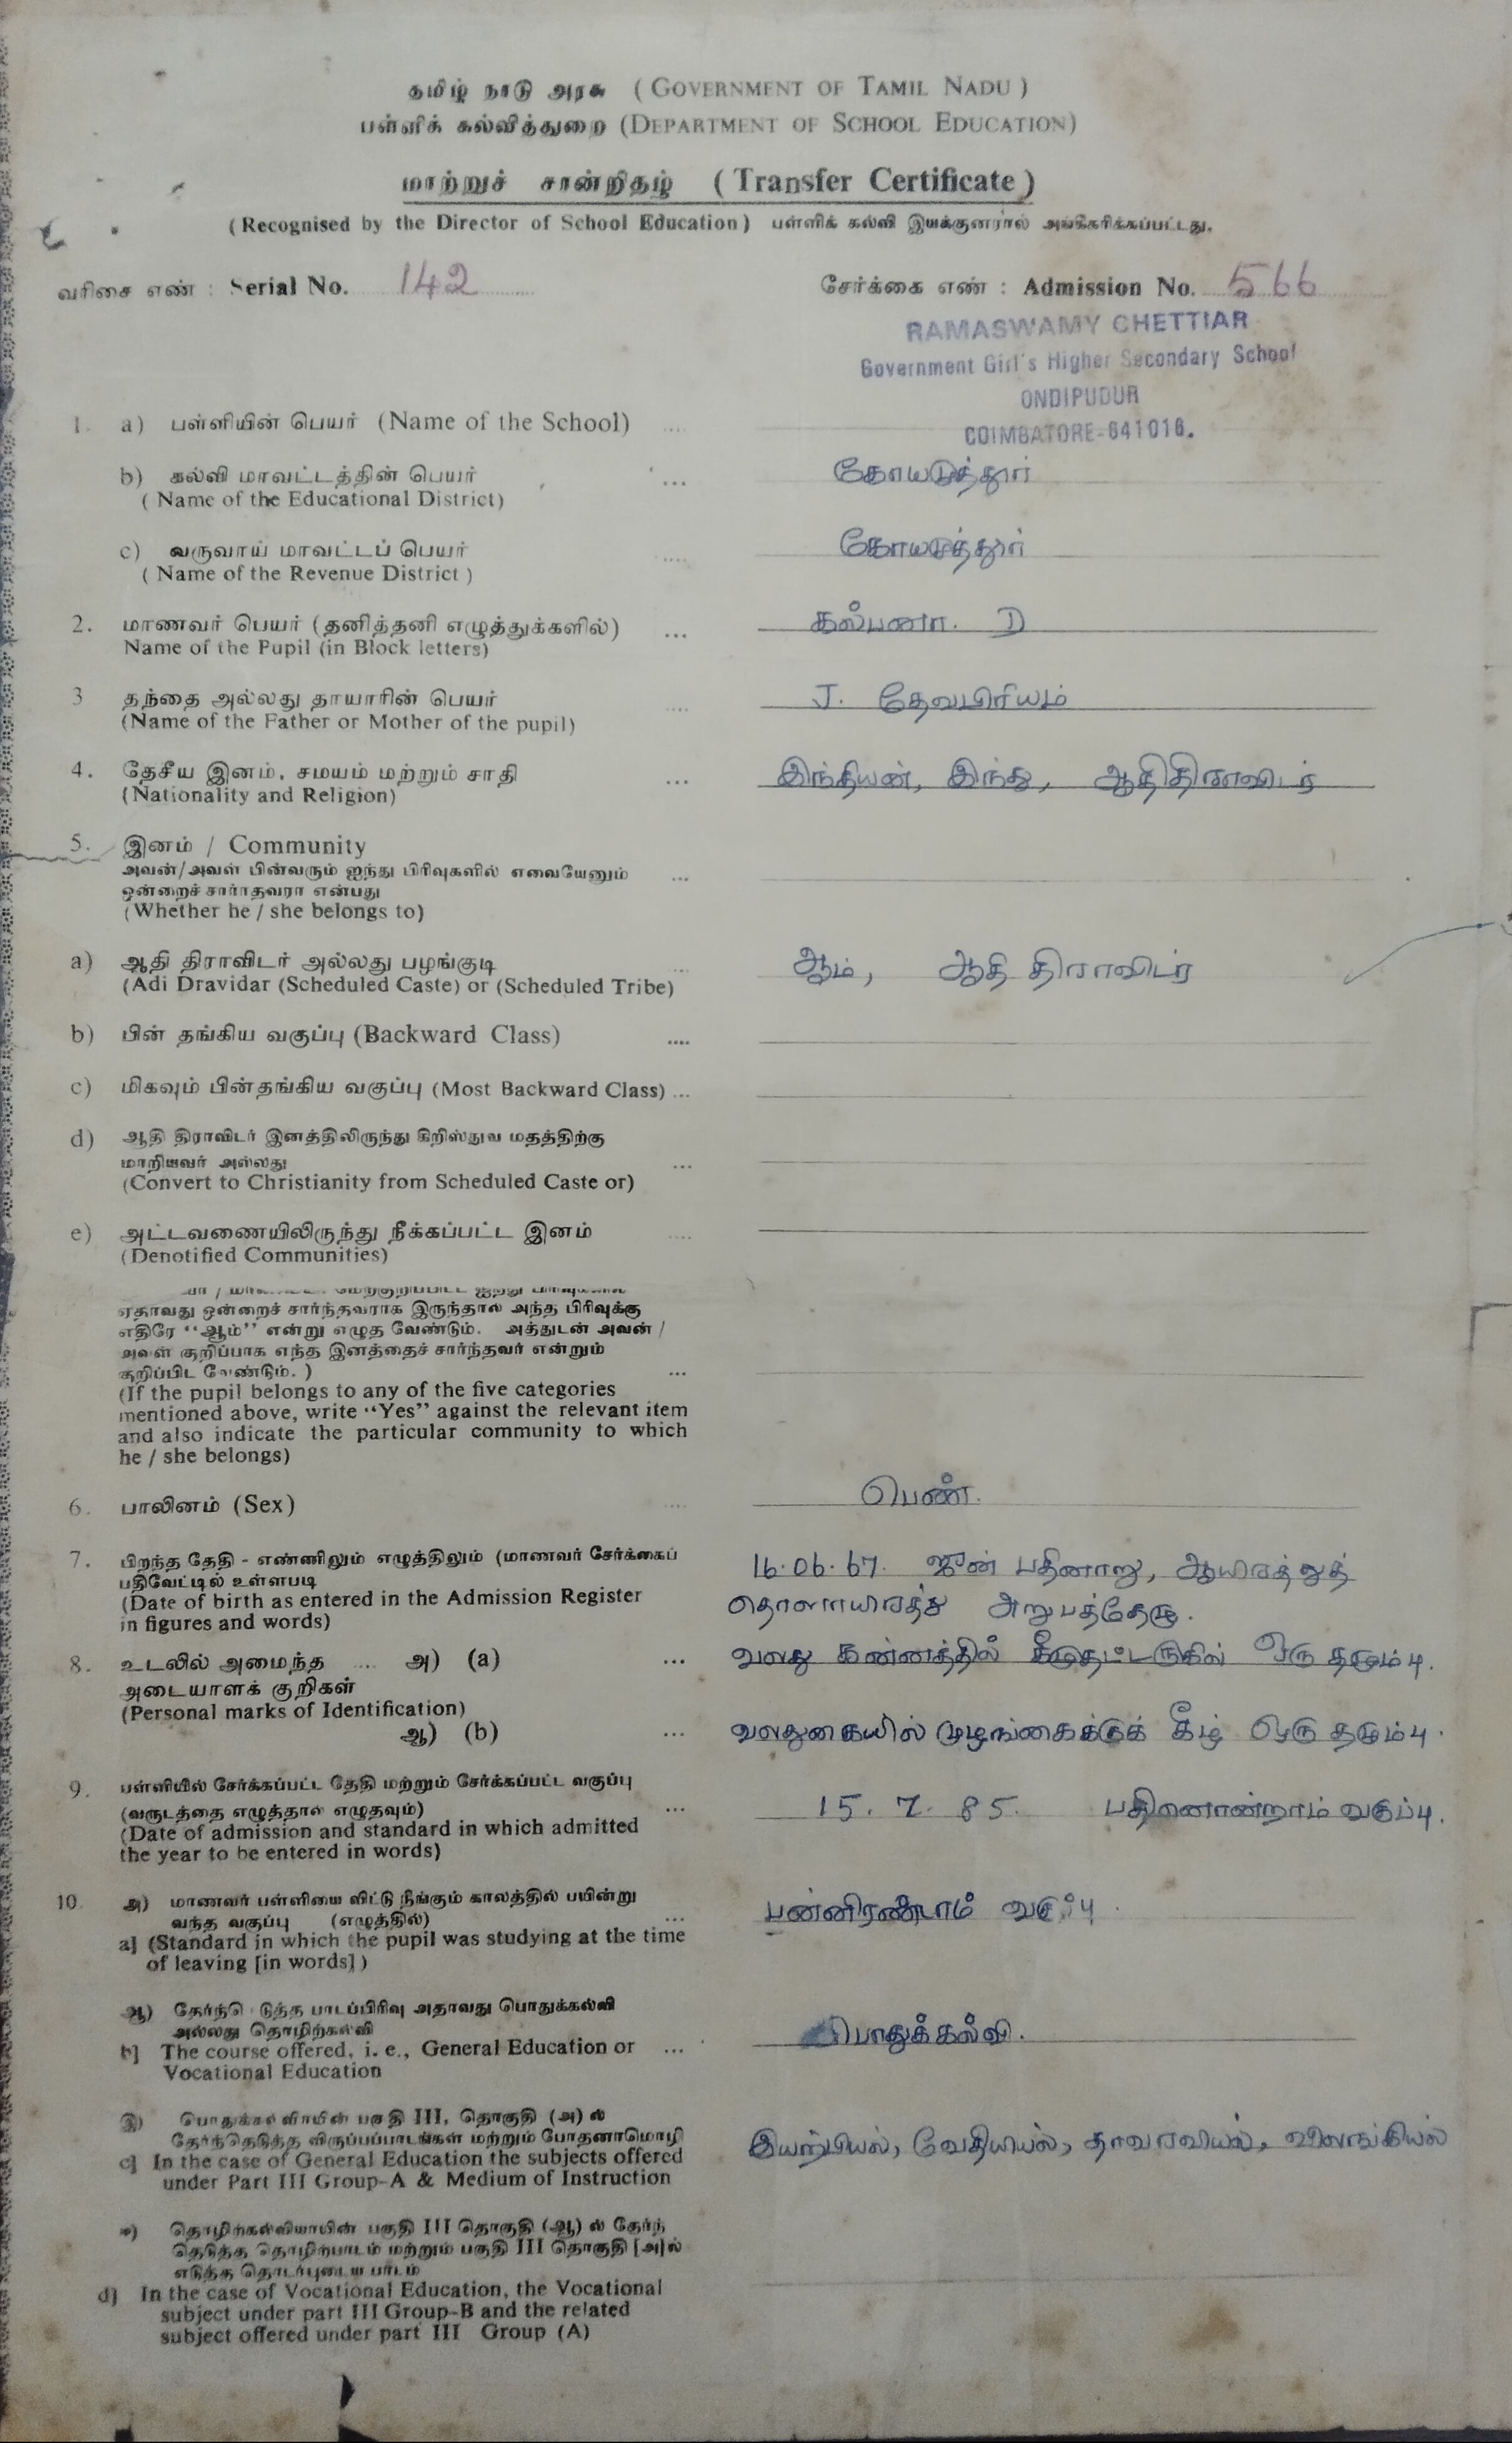 தமிழ் நாடு அரசு ( GOVERNMENT OF TAMIL NADU )
பள்ளிக் கல்வித்துறை (DEPARTMENT OF SCHOOL EDUCATION)
மாற்றுச் சான்றிதழ் ( Transfer Certificate )
(Recognised by the Director of School Education) பள்ளிக் கல்வி இயக்குனரால் அங்கீகரிக்கப்பட்டது.
வரிசை எண் : Serial No. 142 சேர்க்கை எண் : Admission No. 566
RAMASWAMY CHETTIAR
Government Girl's Higher Secondary School
ONDIPUDUR
1. a) பள்ளியின் பெயர் (Name of the School) .... COIMBATORE-641016.
b) கல்வி மாவட்டத்தின் பெயர் ... கோயமுத்தூர்
( Name of the Educational District)
c) வருவாய் மாவட்டப் பெயர் .... கோயமுத்தூர்
( Name of the Revenue District )
2. மாணவர் பெயர் (தனித்தனி எழுத்துக்களில்) ... கல்பனா. D
Name of the Pupil (in Block letters)
3 தந்தை அல்லது தாயாரின் பெயர் .... J. தேவபிரியம்
(Name of the Father or Mother of the pupil)
4. தேசீய இனம், சமயம் மற்றும் சாதி ... இந்தியன், இந்து, ஆதிதிராவிடர்
(Nationality and Religion)
5. இனம் / Community
அவன்/அவள் பின்வரும் ஐந்து பிரிவுகளில் எவையேனும் ...
ஒன்றைச் சார்ாதவரா என்பது
(Whether he / she belongs to)
a) ஆதி திராவிடர் அல்லது பழங்குடி .... ஆம், ஆதி திராவிடர்
(Adi Dravidar (Scheduled Caste) or (Scheduled Tribe)
b) பின் தங்கிய வகுப்பு (Backward Class) ....
c) மிகவும் பின்தங்கிய வகுப்பு (Most Backward Class) ...
d) ஆதி திராவிடர் இனத்திலிருந்து கிறிஸ்துவ மதத்திற்கு
மாறியவர் அல்லது ...
(Convert to Christianity from Scheduled Caste or)
e) அட்டவணையிலிருந்து நீக்கப்பட்ட இனம் ....
(Denotified Communities)
மேற்குறிப்பிட்ட ஐந்து பிரிவுகளில்
ஏதாவது ஒன்றைச் சார்ந்தவராக இருந்தால் அந்த பிரிவுக்கு
எதிரே “ஆம்” என்று எழுத வேண்டும். அத்துடன் அவன் /
அவள் குறிப்பாக எந்த இனத்தைச் சார்ந்தவர் என்றும்
குறிப்பிட வேண்டும். ) ...
(If the pupil belongs to any of the five categories
mentioned above, write “Yes” against the relevant item
and also indicate the particular community to which
he / she belongs)
6. பாலினம் (Sex) .... பெண்.
7. பிறந்த தேதி - எண்ணிலும் எழுத்திலும் (மாணவர் சேர்க்கைப் 16.06.67. ஜுன் பதினாறு, ஆயிரத்துத்
பதிவேட்டில் உள்ளபடி
(Date of birth as entered in the Admission Register தொளாயிரத்து அறுபத்தேழு.
in figures and words)
8. உடலில் அமைந்த .... அ) (a) ... வலது கன்னத்தில் கீழுதட்டருகில் ஒரு தழும்பு.
அடையாளக் குறிகள்
(Personal marks of Identification)
ஆ) (b) ... வலதுகையில் முழங்கைக்குக் கீழ் ஒரு தழும்பு.
9. பள்ளியில் சேர்க்கப்பட்ட தேதி மற்றும் சேர்க்கப்பட்ட வகுப்பு
(வருடத்தை எழுத்தால் எழுதவும்) ... 15. 7. 85. பதினொன்றாம் வகுப்பு.
(Date of admission and standard in which admitted
the year to be entered in words)
10. அ) மாணவர் பள்ளியை விட்டு நீங்கும் காலத்தில் பயின்று
வந்த வகுப்பு (எழுத்தில்) ... பன்னிரண்டாம் வகுப்பு
a] (Standard in which the pupil was studying at the time
of leaving [in words] )
ஆ) தேர்ந்தெடுத்த பாடப்பிரிவு அதாவது பொதுக்கல்வி
அல்லது தொழிற்கல்வி
b] The course offered, i. e., General Education or ... பொதுக்கல்வி.
Vocational Education
இ) பொதுக்கல்வியின் பகுதி III, தொகுதி (அ) ல்
தேர்ந்தெடுத்த விருப்பப்பாடங்கள் மற்றும் போதனாமொழி இயற்பியல், வேதியியல், தாவரவியல், விலங்கியல்
c] In the case of General Education the subjects offered
under Part III Group-A & Medium of Instruction
ஈ) தொழிற்கல்வியாயின் பகுதி III தொகுதி (ஆ) ல் தேர்ந்
தெடுத்த தொழிற்பாடம் மற்றும் பகுதி III தொகுதி [அ]ல்
எடுத்த தொடர்புடைய பாடம்
d] In the case of Vocational Education, the Vocational
subject under part III Group-B and the related
subject offered under part III Group (A)